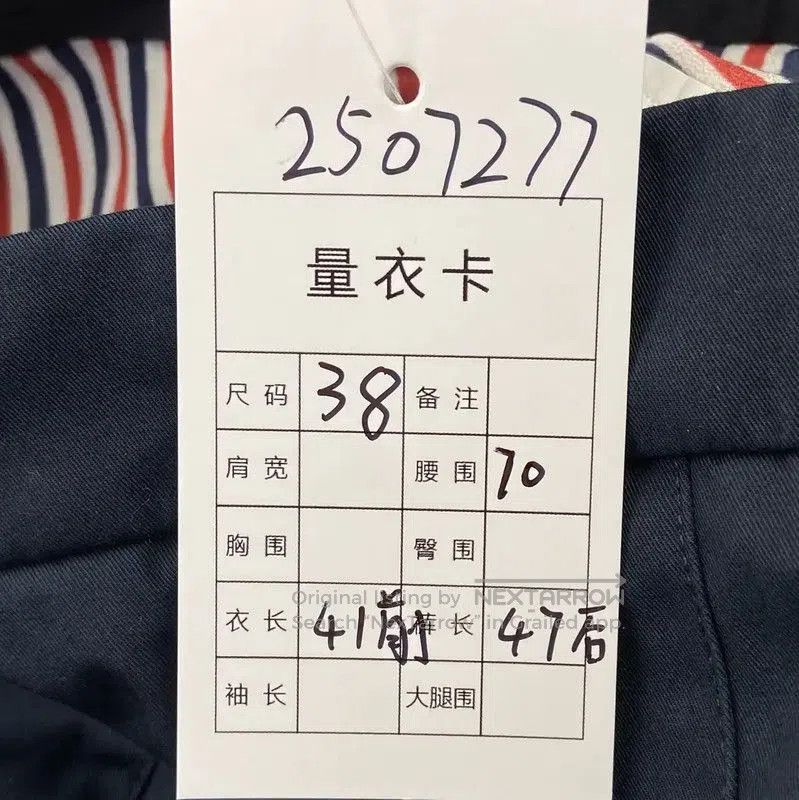 2507277
量衣卡
尺码 38 备注
肩宽 腰围 70
胸围 臀围
Original listing by NEXTARROW
衣长 41前 裤长 47后
Search "NexTarrow" in Grailed app
袖长 大腿围